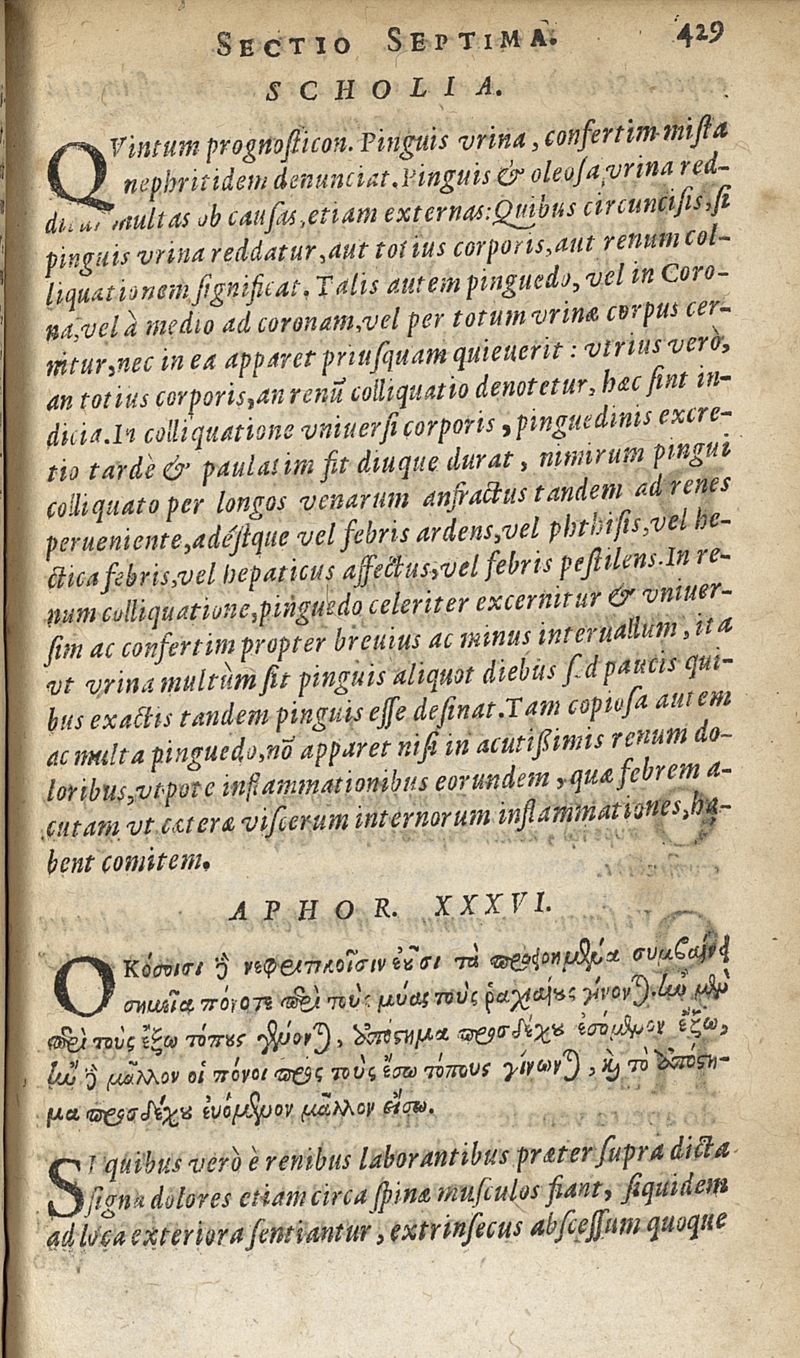 SECTIO SEPTIMA. 429
SCHOLIA.
QVintum prognoſticon. Pinguis vrina, confertim miſta
nephritidem denunciat. Pinguis & oleoſa vrina red-
multas ob cauſas, etiam externas: Quibus circunciſis, ſi
pinguis vrina reddatur, aut totius corporis, aut renum col-
liquationem ſignificat. Talis autem pinguedo, vel in Coro-
na, vel à medio ad coronam, vel per totum vrinæ corpus cer-
nitur, nec in ea apparet priuſquam quieuerit: vtrius verò,
an totius corporis, an renũ colliquatio denotetur, hæc ſint in-
dicia. In colliquatione vniuerſi corporis, pinguedinis excre-
tio tardè & paulatim fit diuque durat, nimirum pingui
colliquato per longos venarum anfractus tandem ad renes
perueniente, adéſtque vel febris ardens, vel phthiſis, vel he-
ctica febris, vel hepaticus affectus, vel febris peſtilens. In re-
num colliquatione, pinguedo celeriter excernitur & vniuer-
ſim ac confertim propter breuius ac minus interuallum, ita
vt vrina multùm ſit pinguis aliquot diebus ſed paucis qui-
bus exactis tandem pinguis eſſe deſinat. Tam copioſa autem
ac multa pinguedo, nõ apparet niſi in acutiſsimis renum do-
loribus, vtpote inflammationibus eorundem, quæ febrem a-
cutam vt cæteræ viſcerum internorum inflammationes, ha-
bent comitem.
APHOR. XXXVI.
Οκόσοισι ἢ νεφριτικοῖσιν ἐοῦσι τὰ προειρημένα συμβαίνει
σημεῖα πόνοι τε περὶ τοὺς μύας τοὺς ῥαχιαίους γίνονται. ἢν μὲν
περὶ τοὺς ἔξω τόπους γένονται, ἀπόστημα προσδέχου ἐσόμενον ἔξω,
ἢν ἢ μᾶλλον οἱ πόνοι πρὸς τοὺς ἔσω τόπους γίνωνται, καὶ τὸ ἀπόστη-
μα προσδέχου ἐνόμενον μᾶλλον εἴσω.
SI quibus verò è renibus laborantibus præter ſupra dicta
ſigna dolores etiam circa ſpinæ muſculos fiant, ſiquidem
ad loca exteriora ſentiantur, extrinſecus abſceſſum quoque